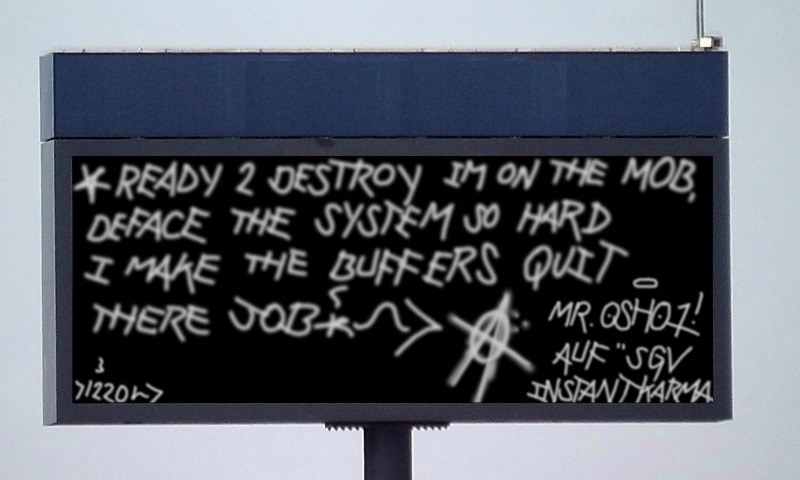 *READY 2 DESTROY IM ON THE MOB,
DEFACE THE SYSTEM SO HARD
I MAKE THE BUFFERS QUIT
THERE JOB*
MR. OSHO1!
AUF "SGV
INSTANTKARMA
3